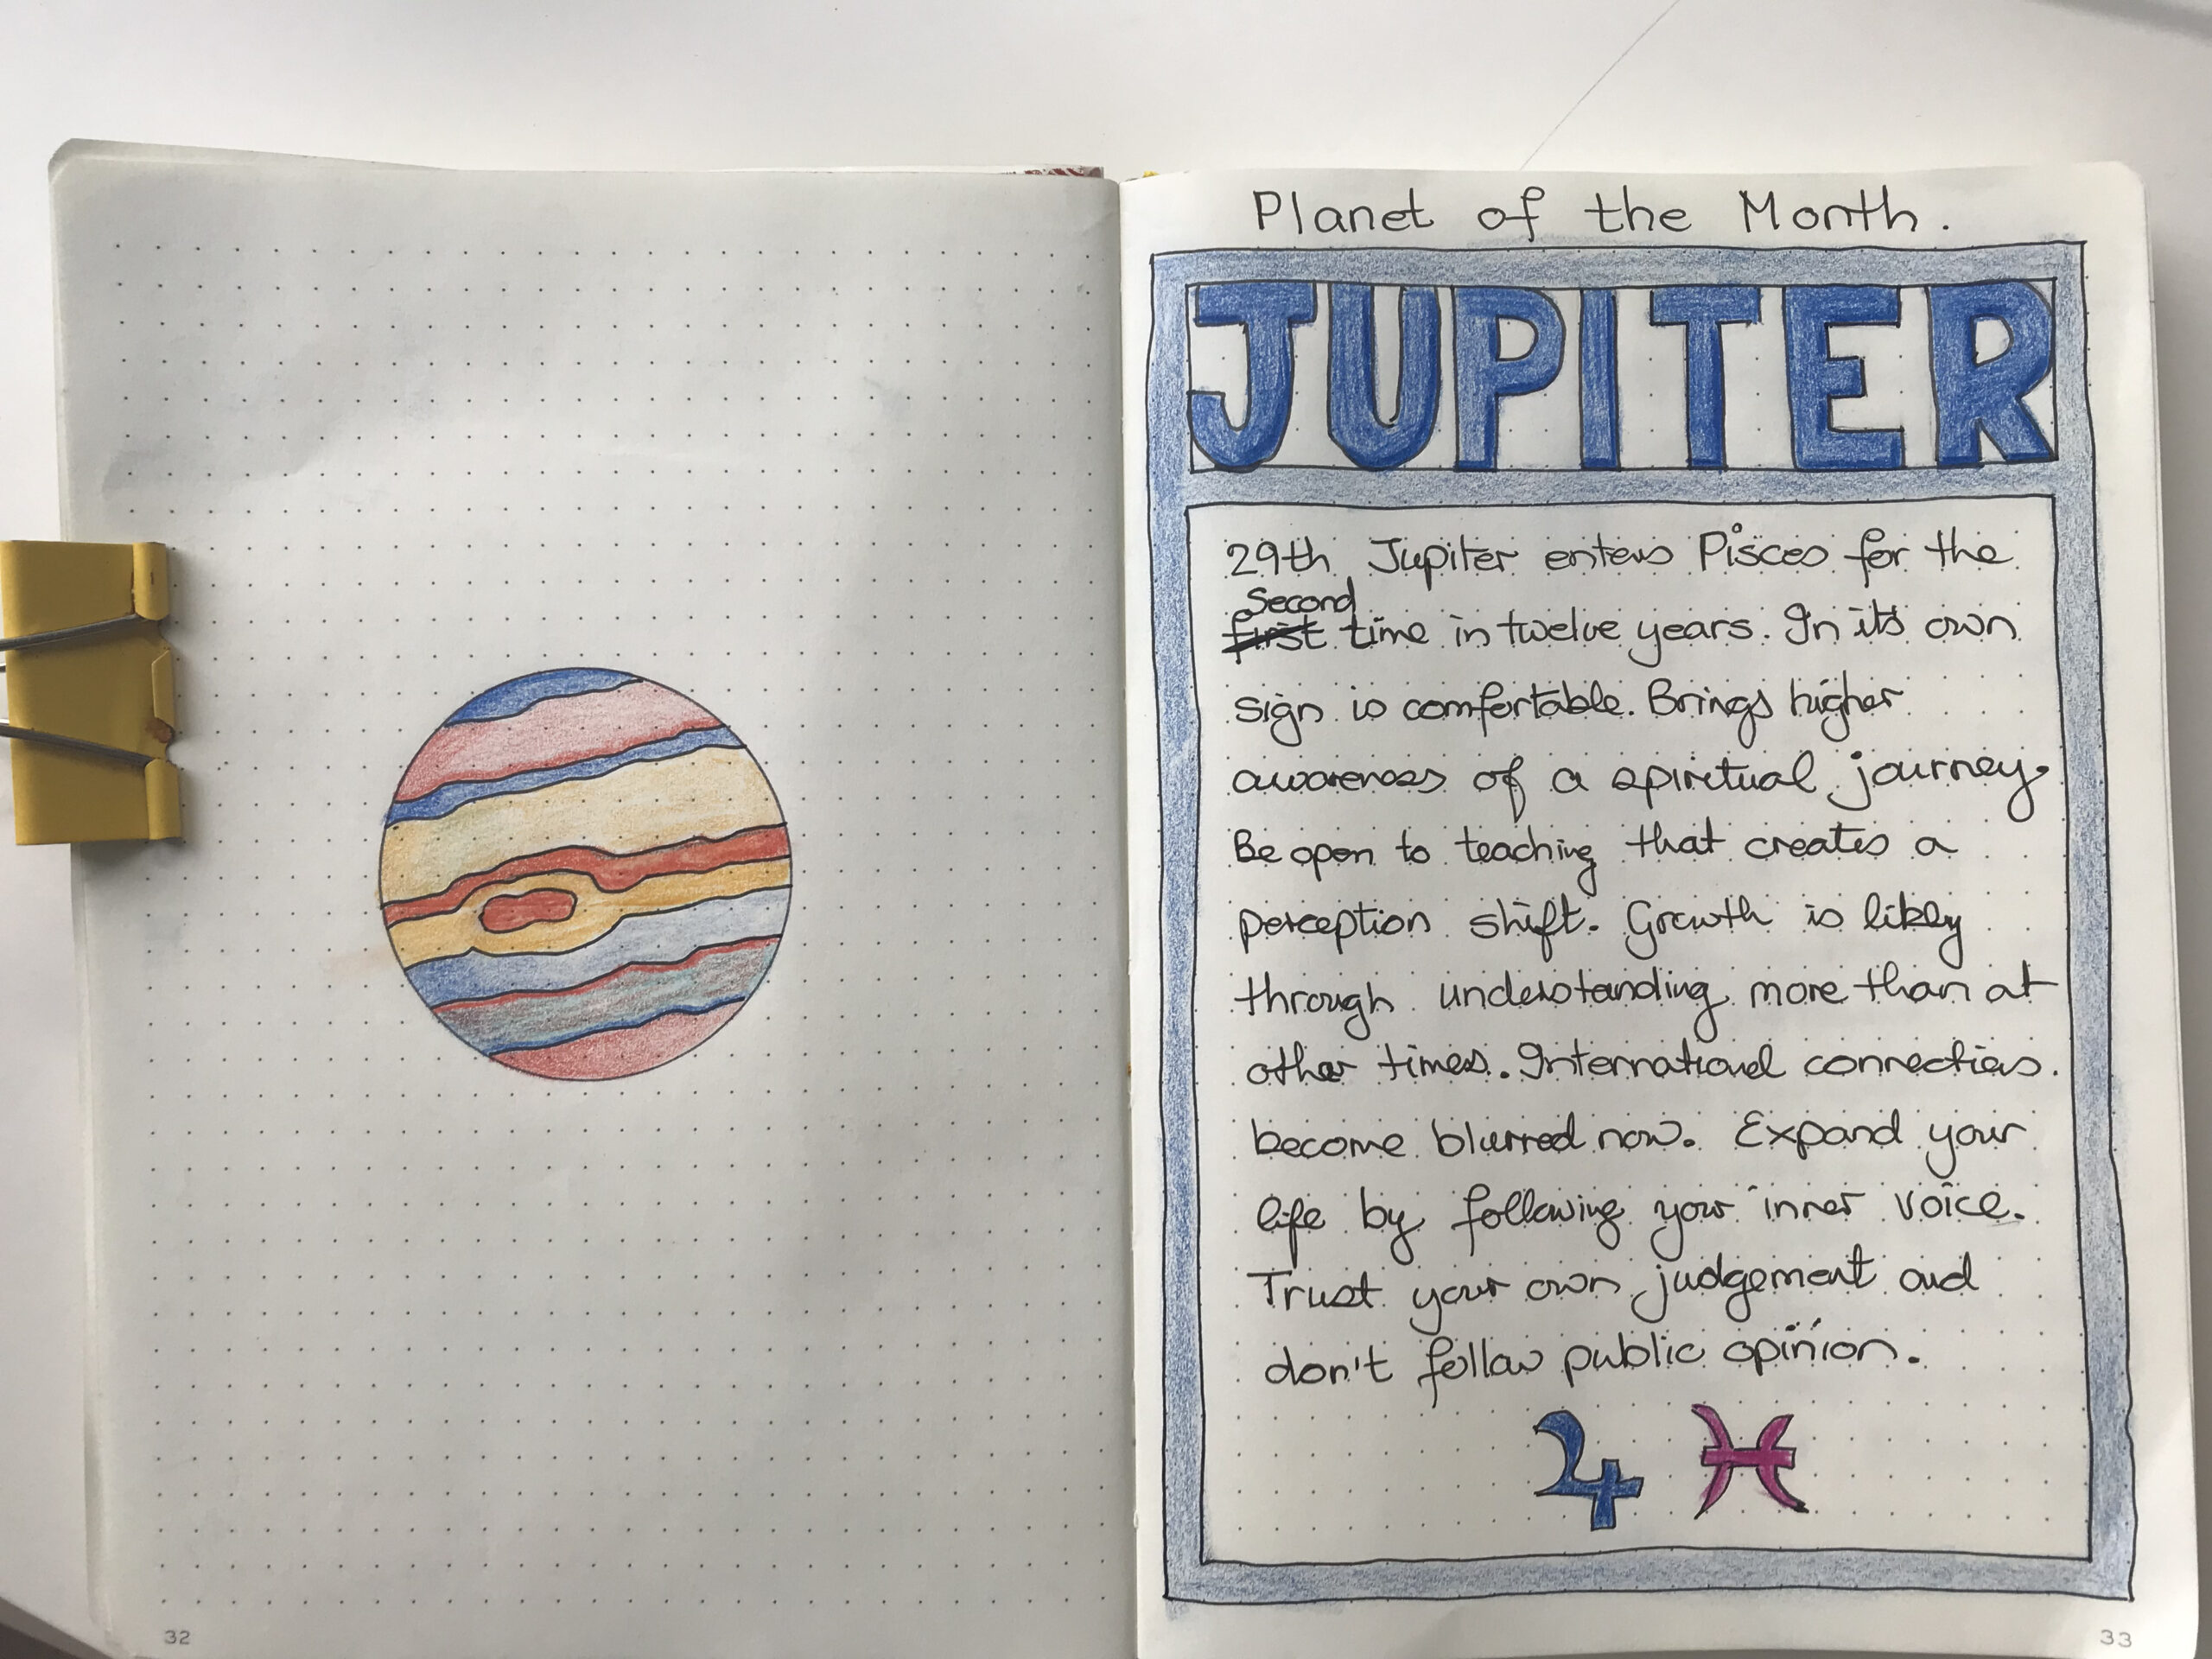 Planet of the Month.
JUPITER
29th Jupiter enters Pisces for the
Second
first time in twelve years. In its own
sign is comfortable. Brings higher
awareness of a spiritual journey.
Be open to teaching that creates a
perception shift. Growth is likely
through understanding more than at
other times. International connections
become blurred now. Expand your
life by following your inner voice.
Trust your own judgement and
don't follow public opinion.
♃ ♓
32
33